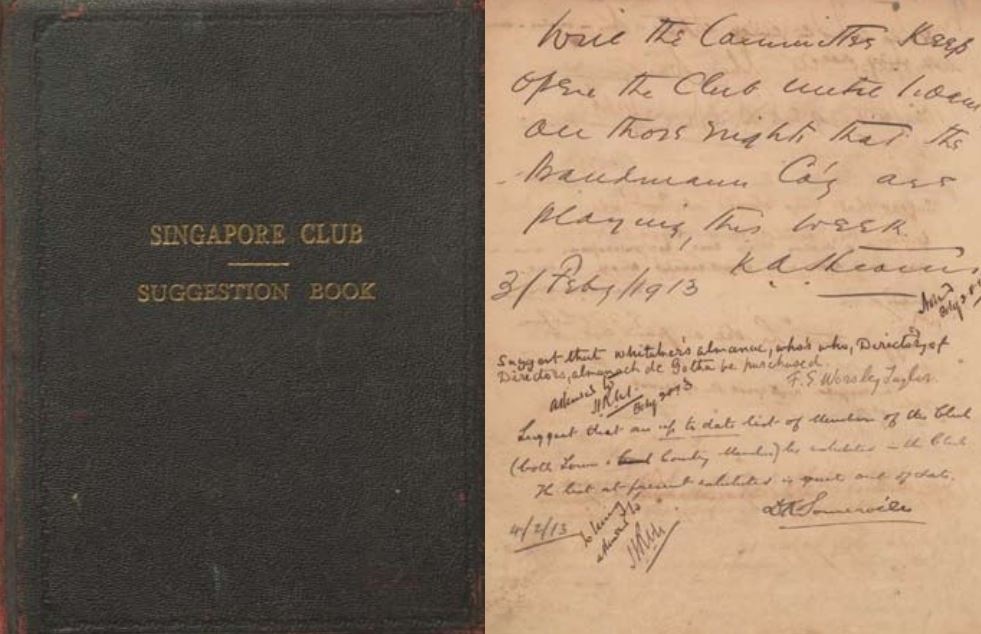 SINGAPORE CLUB
SUGGESTION BOOK
Will the Committee Keep
open the Club until
on those nights that the
Bandmann Co'y are
playing, this week.
3/Feby/1913
Suggest that Whitaker's almanac, who's who, Directory of
Directors, almanach de Gotha be purchased.
F. S Worsley Taylor.
attended to
Suggest that an up to date list of Members of the Club
(both Town & County Members) be exhibited in the Club
The list at present exhibited is quite out of date.
Somerville
4/2/13
attended to